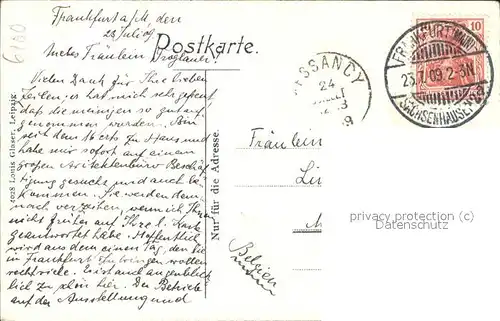 6160
Frankfurt a/M, den
23 Juli 09
Postkarte.
Wertes Fräulein
Vielen Dank für Ihre lieben
Zeilen. es hat mich sehr gefreut
dass die meinigen so gut auf-
genommen wurden. Bin
seit dem 16 erts zu Haus und
habe mir sofort auf einem
großen Büro Beschäf-
tigung gesucht und auch be-
kommen. Sie werden dem-
nach verzeihen, wenn ich Ihnen
nicht früher auf Ihre l. Karte
geantwortet habe. Hoffentlich
wird aus dem einen Tag, den Sie
in Frankfurt zubringen wollen
recht viele. Es ist auch augenblick-
lich zu schön hier. Der Betrieb
auf der Ausstellung und
14028 Louis Glaser, Leipzig.
Nur für die Adresse.
MESSANCY
24
JUIL
09
10
FRANKFURT (MAIN)
23.7.09. 2-3N
SACHSENHAUSEN
Fräulein
Belgien
privacy protection
Datenschutz